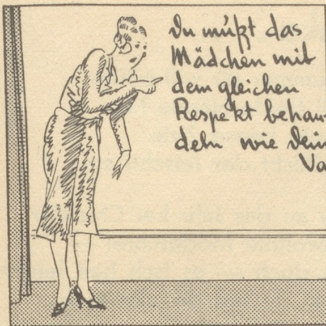 Du mußt das
Mädchen mit
dem gleichen
Respekt behan-
deln wie Dein
Va